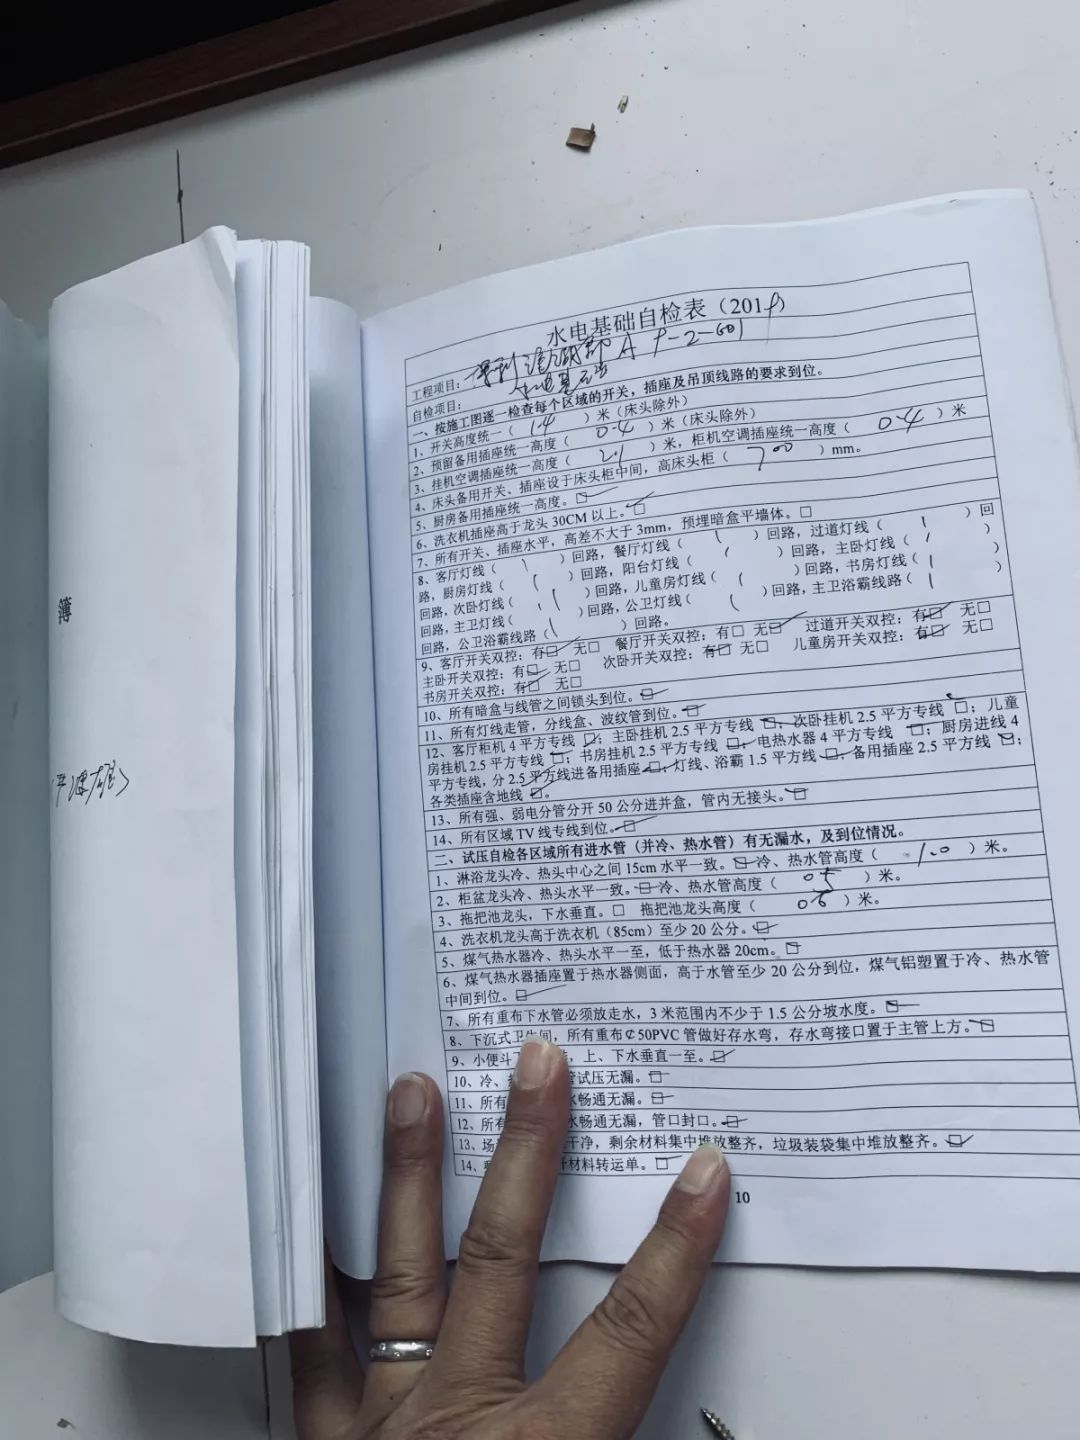 簿
水电基础自检表（201
工程项目： A -2-601
自检项目：
一、按施工图逐一检查每个区域的开关，插座及吊顶线路的要求到位。
1、开关高度统一（ 1.4 ）米（床头除外）
2、预留备用插座统一高度（ 0.4 ）米（床头除外）
3、挂机空调插座统一高度（ 2.1 ）米，柜机空调插座统一高度（ 0.4 ）米
4、床头备用开关、插座设于床头柜中间，高床头柜（ 700 ）mm。
5、厨房备用插座统一高度。☑
6、洗衣机插座高于龙头 30CM 以上。☑
7、所有开关、插座水平，高差不大于 3mm，预埋暗盒平墙体。□
8、客厅灯线（ \ ）回路，餐厅灯线（ \ ）回路，过道灯线（ \ ）回
路，厨房灯线（ ）回路，阳台灯线（ ）回路，主卧灯线（ ）
回路，次卧灯线（ ）回路，儿童房灯线（ ）回路，书房灯线（ ）
回路，主卫灯线（ ）回路，公卫灯线（ ）回路，主卫浴霸线路（ ）
回路，公卫浴霸线路（ ）回路。
9、客厅开关双控：有☑ 无□ 餐厅开关双控：有□ 无☑ 过道开关双控：有☑ 无□
主卧开关双控：有☑ 无□ 次卧开关双控：有☑ 无□ 儿童房开关双控：有☑ 无□
书房开关双控：有☑ 无□
10、所有暗盒与线管之间锁头到位。☑
11、所有灯线走管，分线盒、波纹管到位。☑
12、客厅柜机 4 平方专线☑；主卧挂机 2.5 平方专线☑；次卧挂机 2.5 平方专线☑；儿童
房挂机 2.5 平方专线☑；书房挂机 2.5 平方专线☑；电热水器 4 平方专线☑；厨房进线 4
平方专线，分 2.5 平方线进备用插座☑；灯线、浴霸 1.5 平方线☑；备用插座 2.5 平方线☑；
各类插座含地线☑。
13、所有强、弱电分管分开 50 公分进并盒，管内无接头。☑
14、所有区域 TV 线专线到位。☑
二、试压自检各区域所有进水管（并冷、热水管）有无漏水，及到位情况。
1、淋浴龙头冷、热头中心之间 15cm 水平一致。☑冷、热水管高度（ 1.0 ）米。
2、柜盆龙头冷、热头水平一致。☑冷、热水管高度（ 05 ）米。
3、拖把池龙头，下水垂直。□ 拖把池龙头高度（ 06 ）米。
4、洗衣机龙头高于洗衣机（85cm）至少 20 公分。☑
5、煤气热水器冷、热头水平一至，低于热水器 20cm。☑
6、煤气热水器插座置于热水器侧面，高于水管至少 20 公分到位，煤气铝塑置于冷、热水管
中间到位。☑
7、所有重布下水管必须放走水，3 米范围内不少于 1.5 公分坡水度。☑
8、下沉式卫生间，所有重布￠50PVC 管做好存水弯，存水弯接口置于主管上方。☑
9、小便斗下 ，上、下水垂直一至。☑
10、冷、 管试压无漏。☑
11、所有 水畅通无漏。☑
12、所有 水畅通无漏，管口封口。☑
13、场 干净，剩余材料集中堆放整齐，垃圾装袋集中堆放整齐。☑
14、 材料转运单。☑
10